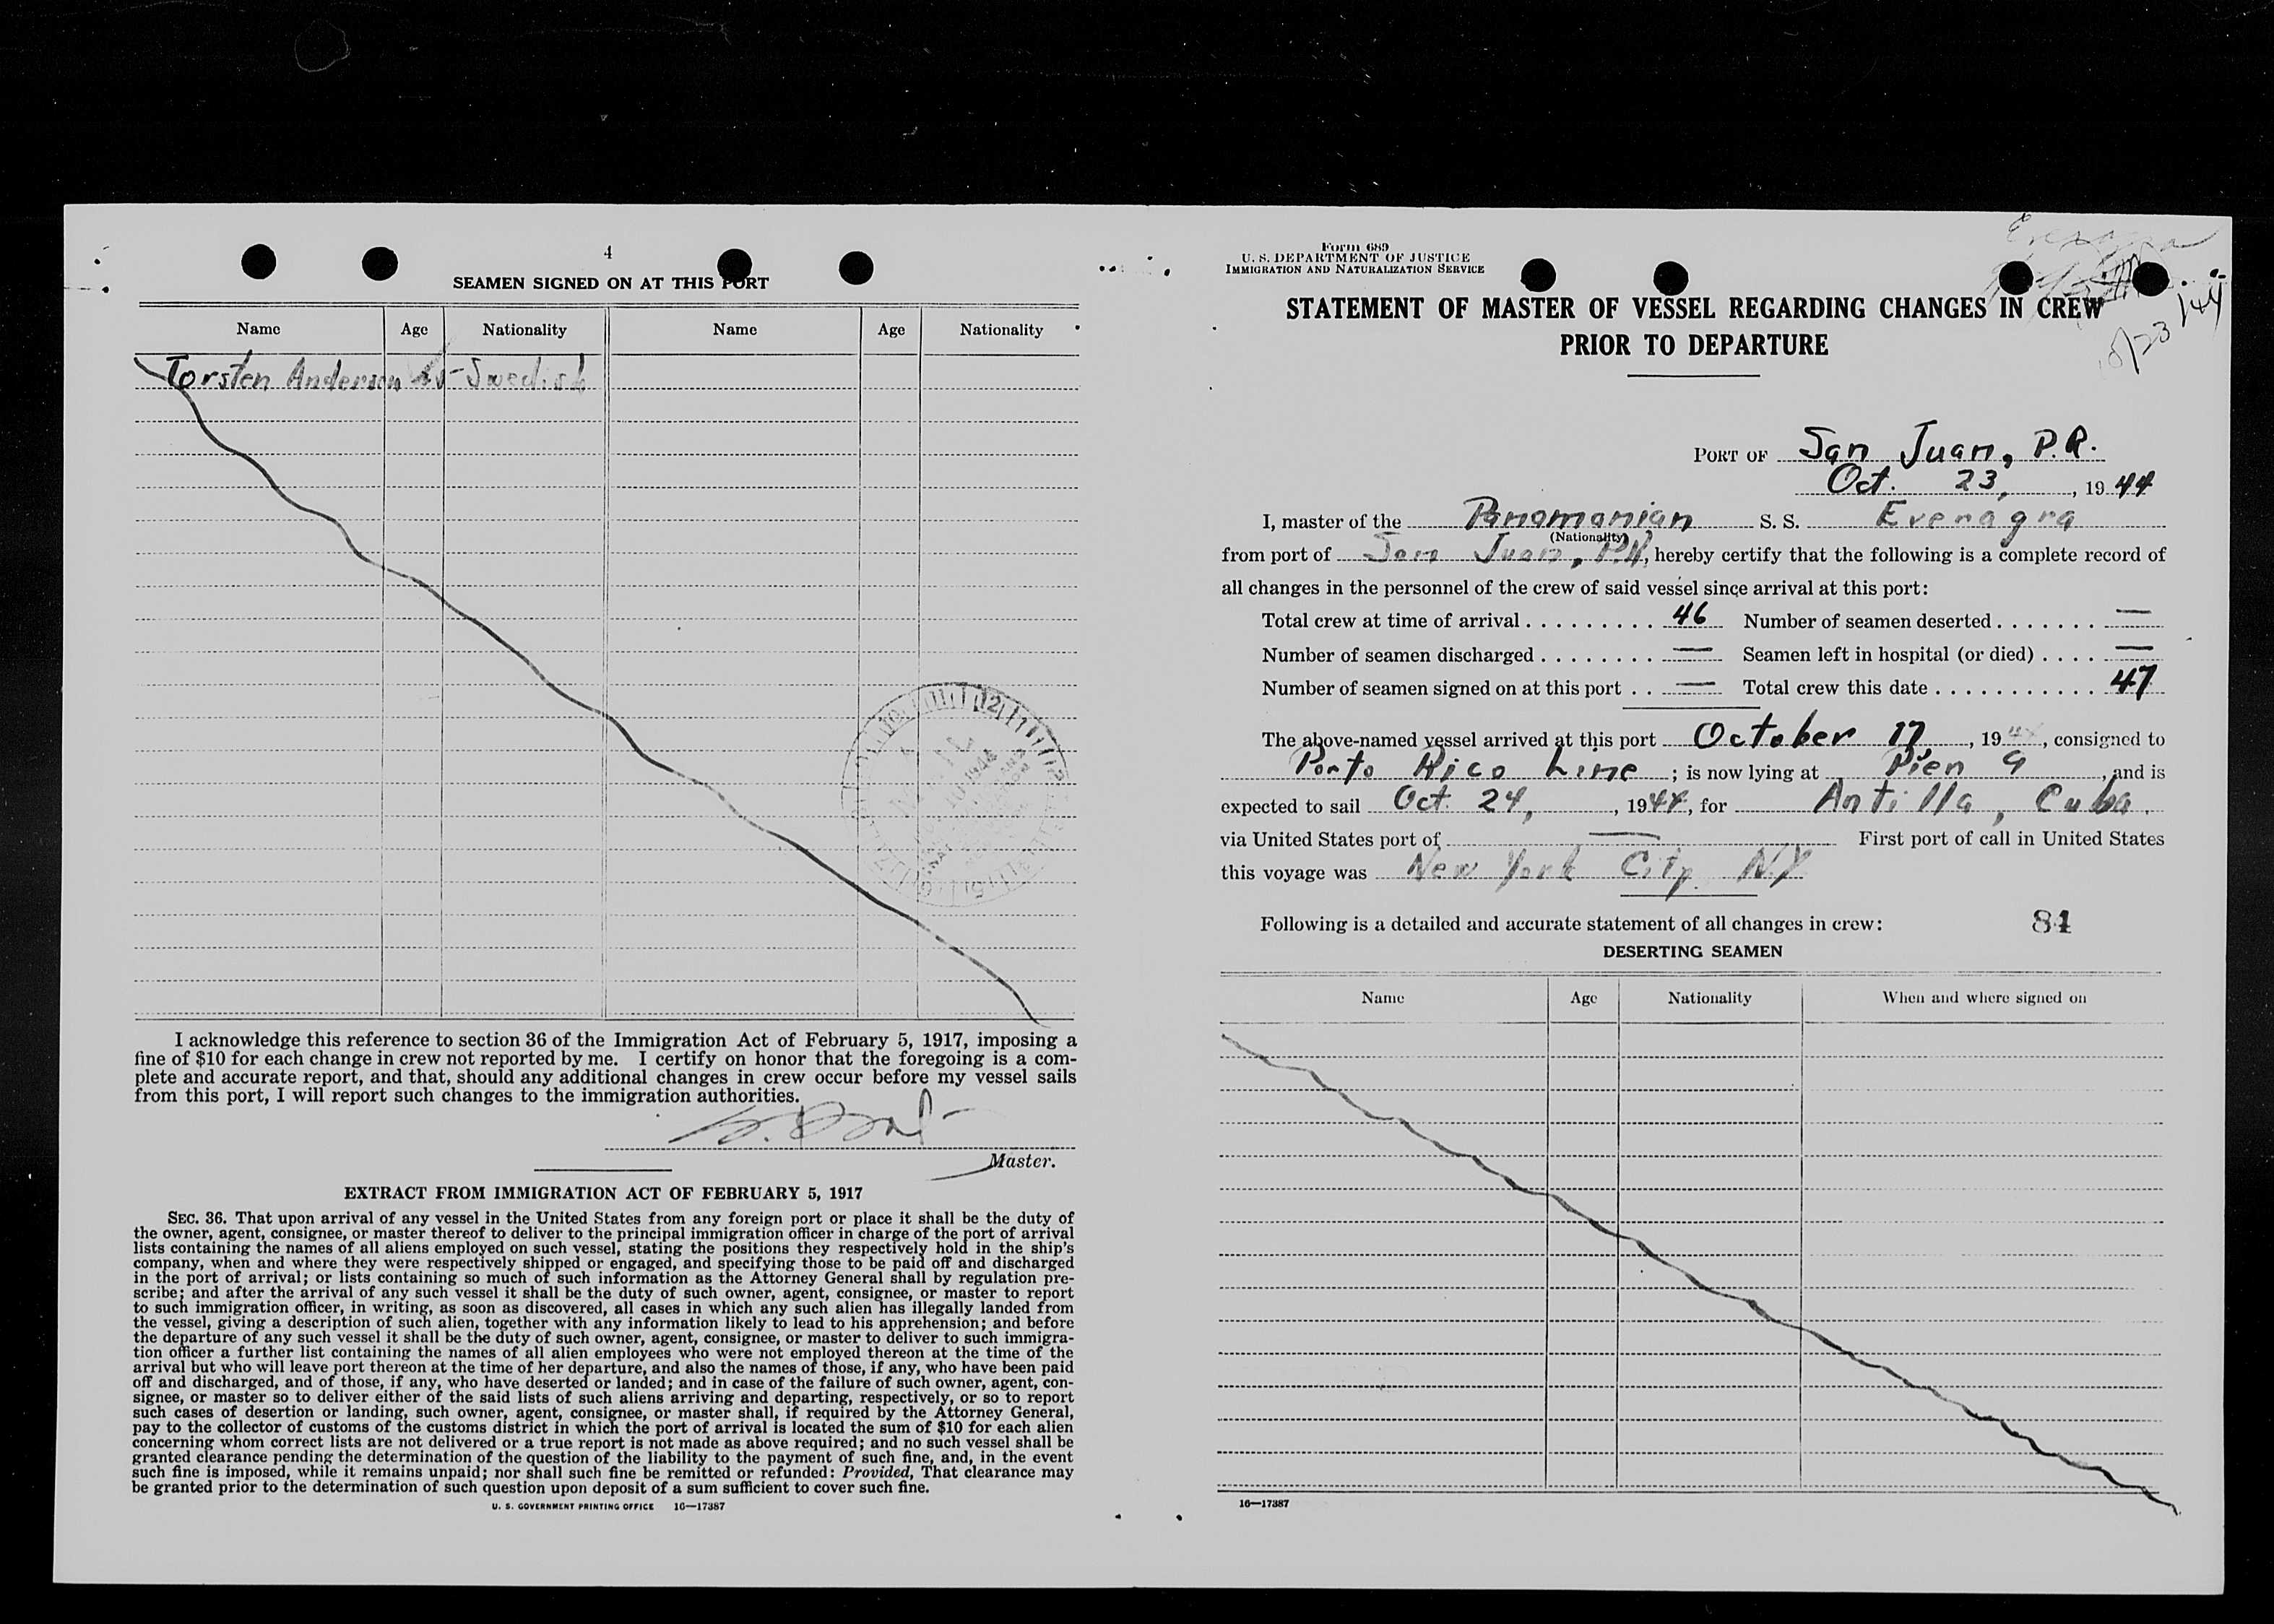 4
SEAMEN SIGNED ON AT THIS PORT
Name Age Nationality Name Age Nationality
Torsten Anderson Swedish
I acknowledge this reference to section 36 of the Immigration Act of February 5, 1917, imposing a
fine of $10 for each change in crew not reported by me. I certify on honor that the foregoing is a com-
plete and accurate report, and that, should any additional changes in crew occur before my vessel sails
from this port, I will report such changes to the immigration authorities.
Master.
EXTRACT FROM IMMIGRATION ACT OF FEBRUARY 5, 1917
SEC. 36. That upon arrival of any vessel in the United States from any foreign port or place it shall be the duty of
the owner, agent, consignee, or master thereof to deliver to the principal immigration officer in charge of the port of arrival
lists containing the names of all aliens employed on such vessel, stating the positions they respectively hold in the ship's
company, when and where they were respectively shipped or engaged, and specifying those to be paid off and discharged
in the port of arrival; or lists containing so much of such information as the Attorney General shall by regulation pre-
scribe; and after the arrival of any such vessel it shall be the duty of such owner, agent, consignee, or master to report
to such immigration officer, in writing, as soon as discovered, all cases in which any such alien has illegally landed from
the vessel, giving a description of such alien, together with any information likely to lead to his apprehension; and before
the departure of any such vessel it shall be the duty of such owner, agent, consignee, or master to deliver to such immigra-
tion officer a further list containing the names of all alien employees who were not employed thereon at the time of the
arrival but who will leave port thereon at the time of her departure, and also the names of those, if any, who have been paid
off and discharged, and of those, if any, who have deserted or landed; and in case of the failure of such owner, agent, con-
signee, or master so to deliver either of the said lists of such aliens arriving and departing, respectively, or so to report
such cases of desertion or landing, such owner, agent, consignee, or master shall, if required by the Attorney General,
pay to the collector of customs of the customs district in which the port of arrival is located the sum of $10 for each alien
concerning whom correct lists are not delivered or a true report is not made as above required; and no such vessel shall be
granted clearance pending the determination of the question of the liability to the payment of such fine, and, in the event
such fine is imposed, while it remains unpaid; nor shall such fine be remitted or refunded: Provided, That clearance may
be granted prior to the determination of such question upon deposit of a sum sufficient to cover such fine.
U. S. GOVERNMENT PRINTING OFFICE 16—17387
Form 689
U. S. DEPARTMENT OF JUSTICE
IMMIGRATION AND NATURALIZATION SERVICE
10/23/44
STATEMENT OF MASTER OF VESSEL REGARDING CHANGES IN CREW
PRIOR TO DEPARTURE
PORT OF San Juan, P.R.
Oct. 23, , 19 44
I, master of the Panamanian S. S. Evenagra
(Nationality)
from port of San Juan, P.R, hereby certify that the following is a complete record of
all changes in the personnel of the crew of said vessel since arrival at this port:
Total crew at time of arrival . . . . . . . . . 46 Number of seamen deserted . . . . . . . —
Number of seamen discharged . . . . . . . . — Seamen left in hospital (or died) . . . . —
Number of seamen signed on at this port . . — Total crew this date . . . . . . . . . . . . 47
The above-named vessel arrived at this port October 17, 1944, consigned to
Porto Rico Line ; is now lying at Pier 9 , and is
expected to sail Oct. 24, , 1944, for Antilla, Cuba.
via United States port of — First port of call in United States
this voyage was New York City N.Y
Following is a detailed and accurate statement of all changes in crew: 84
DESERTING SEAMEN
Name Age Nationality When and where signed on
16—17387